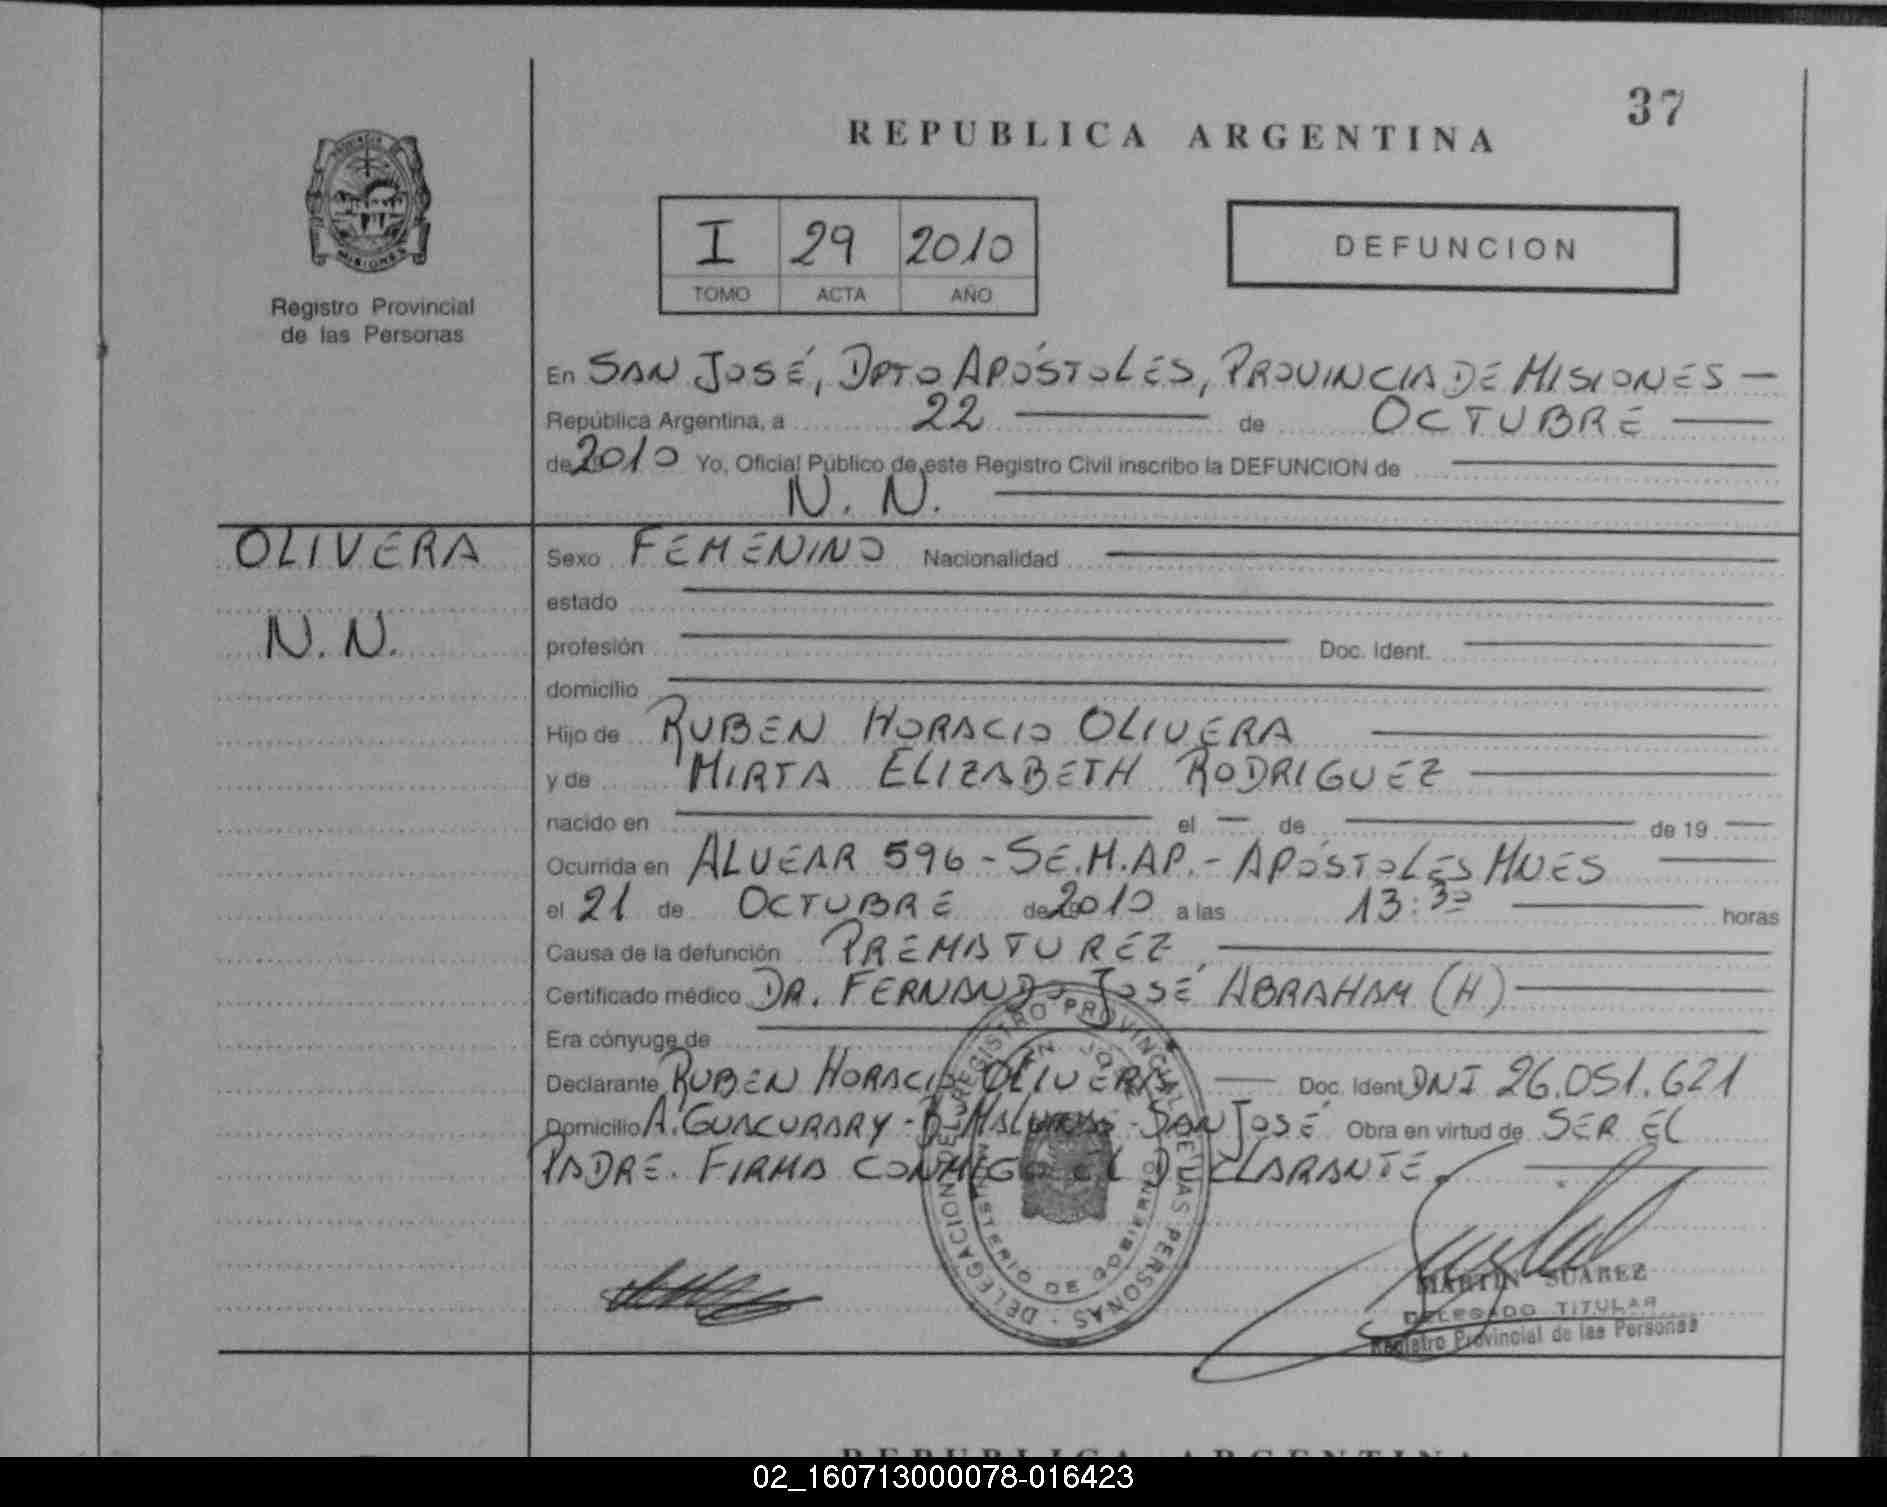 37
REPUBLICA ARGENTINA
PROVINCIA
MISIONES
Registro Provincial
de las Personas
I 29 2010
TOMO ACTA AÑO
DEFUNCION
En SAN JOSÉ, DPTO APÓSTOLES, PROVINCIA DE MISIONES —
República Argentina, a 22 — de OCTUBRE —
de 2010 Yo, Oficial Público de este Registro Civil inscribo la DEFUNCION de —
N. N. —
OLIVERA
N. N.
Sexo FEMENINO Nacionalidad —
estado —
profesión — Doc. Ident. —
domicilio —
Hijo de RUBEN HORACIO OLIVERA —
y de MIRTA ELIZABETH RODRIGUEZ —
nacido en — el — de — de 19 —
Ocurrida en ALVEAR 596 - SE.M.AP. - APÓSTOLES MNES —
el 21 de OCTUBRE de 2010 a las 13:30 — horas
Causa de la defunción PREMATUREZ —
Certificado médico DR. FERNANDO JOSÉ ABRAHAM (H) —
Era cónyuge de —
Declarante RUBEN HORACIO OLIVERA — Doc. Ident. DNI 26.051.621
Domicilio A. GUACURARY - B. MALVINAS - SAN JOSÉ Obra en virtud de SER EL
PADRE. FIRMA CONMIGO EL DECLARANTE. —
DELEGACION DEL REGISTRO PROVINCIAL DE LAS PERSONAS
SAN JOSE
MINISTERIO DE GOBIERNO
MARTIN SUAREZ
DELEGADO TITULAR
Registro Provincial de las Personas
REPUBLICA ARGENTINA
02_160713000078-016423